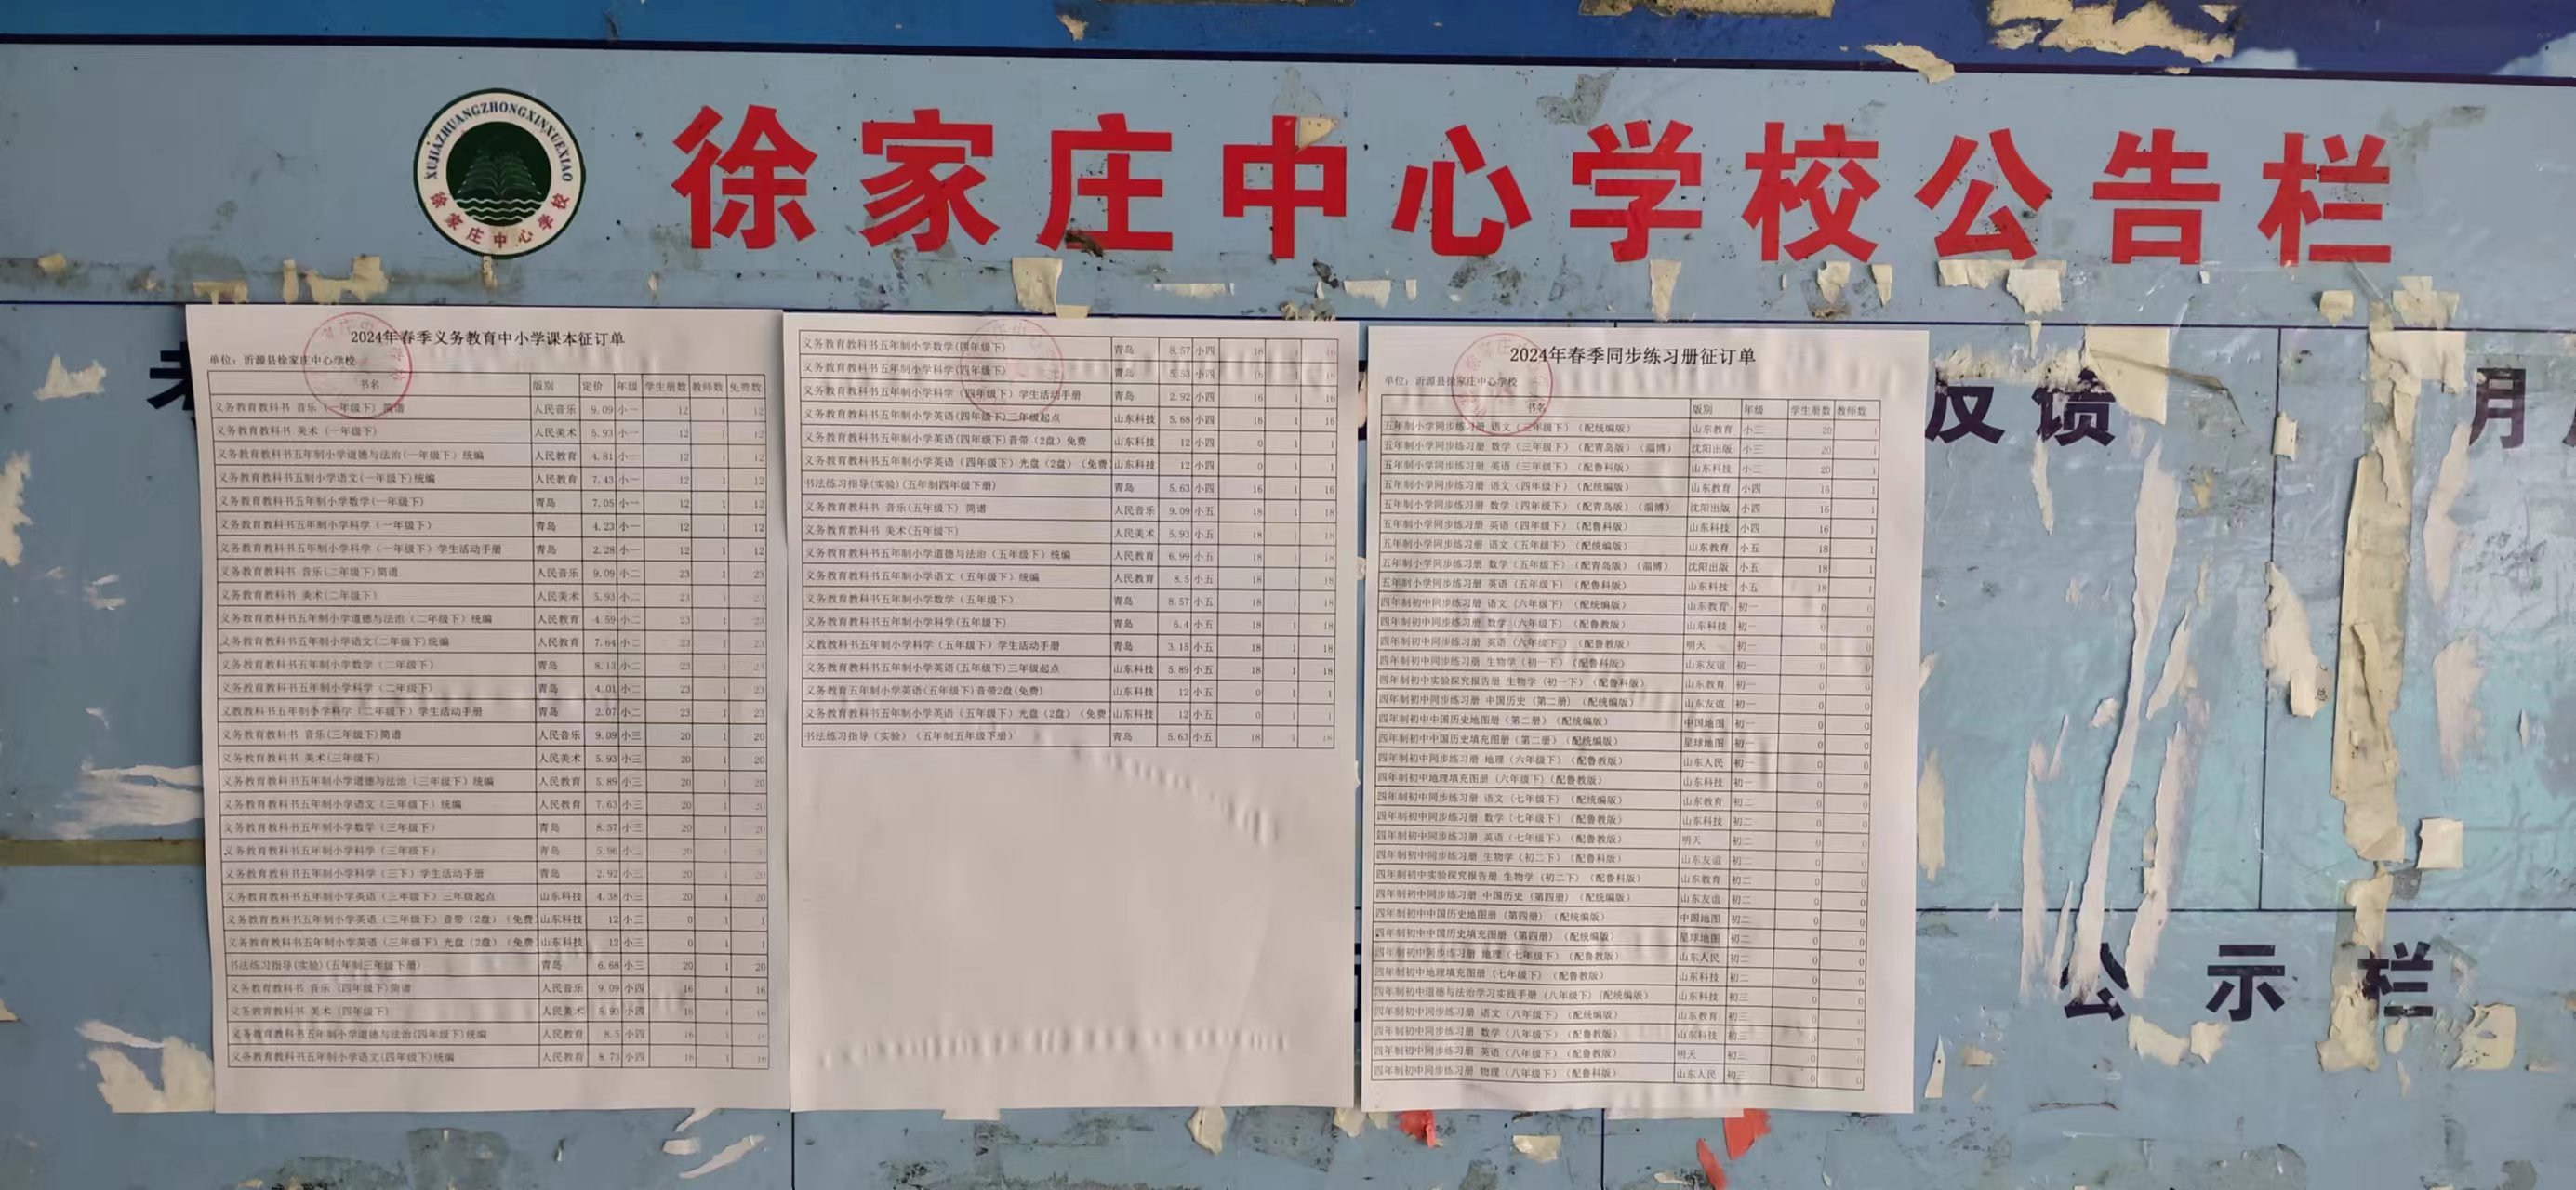 XUJIAZHUANGZHONGXINXUEXIAO
徐家庄中心学校
徐家庄中心学校公告栏
2024年春季义务教育中小学课本征订单
单位：沂源县徐家庄中心学校
书名 版别 定价 年级 学生册数 教师数 免费数
义务教育教科书 音乐（一年级下）简谱 人民音乐 9.09 小一 12 1 12
义务教育教科书 美术（一年级下） 人民美术 5.93 小一 12 1 12
义务教育教科书五年制小学道德与法治(一年级下）统编 人民教育 4.81 小一 12 1 12
义务教育教科书五制小学语文(一年级下)统编 人民教育 7.43 小一 12 1 12
义务教育教科书五年制小学数学(一年级下) 青岛 7.05 小一 12 1 12
义务教育教科书五年制小学科学（一年级下） 青岛 4.23 小一 12 1 12
义务教育教科书五年制小学科学（一年级下）学生活动手册 青岛 2.28 小一 12 1 12
义务教育教科书 音乐(二年级下)简谱 人民音乐 9.09 小二 23 1 23
义务教育教科书 美术(二年级下) 人民美术 5.93 小二 23 1 23
义务教育教科书五年制小学道德与法治（二年级下）统编 人民教育 4.59 小二 23 1 23
义务教育教科书五年制小学语文(二年级下)统编 人民教育 7.64 小二 23 1 23
义务教育教科书五年制小学数学（二年级下） 青岛 8.13 小二 23 1 23
义务教育教科书五年制小学科学（二年级下） 青岛 4.01 小二 23 1 23
义教教科书五年制小学科学（二年级下）学生活动手册 青岛 2.07 小二 23 1 23
义务教育教科书 音乐(三年级下)简谱 人民音乐 9.09 小三 20 1 20
义务教育教科书 美术(三年级下) 人民美术 5.93 小三 20 1 20
义务教育教科书五年制小学道德与法治（三年级下）统编 人民教育 5.89 小三 20 1 20
义务教育教科书五年制小学语文（三年级下）统编 人民教育 7.63 小三 20 1 20
义务教育教科书五年制小学数学（三年级下） 青岛 8.57 小三 20 1 20
义务教育教科书五年制小学科学（三年级下） 青岛 5.96 20
义务教育教科书五年制小学科学（三下）学生活动手册 青岛 2.92 小三 20 1 20
义务教育教科书五年制小学英语（三年级下）三年级起点 山东科技 4.38 小三 20 1 20
义务教育教科书五年制小学英语（三年级下）音带（2盘）（免费 山东科技 12 小三 0 1 1
义务教育教科书五年制小学英语（三年级下）光盘（2盘）（免费 山东科技 12 小三 0 1 1
书法练习指导(实验)(五年制三年级下册) 青岛 6.68 小三 20 1 20
义务教育教科书 音乐（四年级下)简谱 人民音乐 9.09 小四 16 1 16
义务教育教科书 美术（四年级下） 人民美术 5.93 小四 16 1 16
义务教育教科书五年制小学道德与法治(四年级下)统编 人民教育 8.5 小四 16 1 16
义务教育教科书五年制小学语文(四年级下)统编 人民教育 8.73 小四 16 1 16
义务教育教科书五年制小学数学(四年级下) 青岛 8.57 小四 16 1 16
义务教育教科书五年制小学科学(四年级下) 青岛 5.53 小四 16 1 16
义务教育教科书五年制小学科学（四年级下）学生活动手册 青岛 2.92 小四 16 1 16
义务教育教科书五年制小学英语(四年级下)三年级起点 山东科技 5.68 小四 16 1 16
义务教育教科书五年制小学英语(四年级下)音带（2盘）免费 山东科技 12 小四 0 1 1
义务教育教科书五年制小学英语（四年级下）光盘（2盘）（免费 山东科技 12 小四 0 1 1
书法练习指导(实验)(五年制四年级下册) 青岛 5.63 小四 16 1 16
义务教育教科书 音乐(五年级下) 简谱 人民音乐 9.09 小五 18 1 18
义务教育教科书 美术(五年级下) 人民美术 5.93 小五 18 1 18
义务教育教科书五年制小学道德与法治（五年级下）统编 人民教育 6.99 小五 18 1 18
义务教育教科书五年制小学语文（五年级下）统编 人民教育 8.5 小五 18 1 18
义务教育教科书五年制小学数学（五年级下） 青岛 8.57 小五 18 1 18
义务教育教科书五年制小学科学(五年级下) 青岛 6.4 小五 18 1 18
义教教科书五年制小学科学（五年级下）学生活动手册 青岛 3.15 小五 18 1 18
义务教育教科书五年制小学英语(五年级下)三年级起点 山东科技 5.89 小五 18 1 18
义务教育五年制小学英语(五年级下)音带2盘(免费) 山东科技 12 小五 0 1 1
义务教育教科书五年制小学英语（五年级下）光盘（2盘）（免费 山东科技 12 小五 0 1 1
书法练习指导（实验）（五年制五年级下册） 青岛 5.63 小五 18 1 18
2024年春季同步练习册征订单
单位：沂源县徐家庄中心学校
书名 版别 年级 学生册数 教师数
五年制小学同步练习册 语文（三年级下）（配统编版） 山东教育 小三 20 1
五年制小学同步练习册 数学（三年级下）（配青岛版）（淄博） 沈阳出版 小三 20 1
五年制小学同步练习册 英语（三年级下）（配鲁科版） 山东科技 小三 20 1
五年制小学同步练习册 语文（四年级下）（配统编版） 山东教育 小四 16 1
五年制小学同步练习册 数学（四年级下）（配青岛版）（淄博） 沈阳出版 小四 16 1
五年制小学同步练习册 英语（四年级下）（配鲁科版） 山东科技 小四 16 1
五年制小学同步练习册 语文（五年级下）（配统编版） 山东教育 小五 18 1
五年制小学同步练习册 数学（五年级下）（配青岛版）（淄博） 沈阳出版 小五 18 1
五年制小学同步练习册 英语（五年级下）（配鲁科版） 山东科技 小五 18 1
四年制初中同步练习册 语文（六年级下）（配统编版） 山东教育 初一 0 0
四年制初中同步练习册 数学（六年级下）（配鲁教版） 山东科技 初一 0 0
四年制初中同步练习册 英语（六年级下）（配鲁教版） 明天 初一 0 0
四年制初中同步练习册 生物学（初一下）（配鲁科版） 山东友谊 初一 0 0
四年制初中实验探究报告册 生物学（初一下）（配鲁科版） 山东教育 初一 0 0
四年制初中同步练习册 中国历史（第二册）（配统编版） 山东友谊 初一 0 0
四年制初中中国历史地图册（第二册）（配统编版） 中国地图 初一 0 0
四年制初中中国历史填充图册（第二册）（配统编版） 星球地图 初一 0 0
四年制初中同步练习册 地理（六年级下）（配鲁教版） 山东人民 初一 0 0
四年制初中地理填充图册（六年级下）（配鲁教版） 山东科技 初一 0 0
四年制初中同步练习册 语文（七年级下）（配统编版） 山东教育 初二 0 0
四年制初中同步练习册 数学（七年级下）（配鲁教版） 山东科技 初二 0 0
四年制初中同步练习册 英语（七年级下）（配鲁教版） 明天 初二 0 0
四年制初中同步练习册 生物学（初二下）（配鲁科版） 山东友谊 初二 0 0
四年制初中实验探究报告册 生物学（初二下）（配鲁科版） 山东教育 初二 0 0
四年制初中同步练习册 中国历史（第四册）（配统编版） 山东友谊 初二 0 0
四年制初中中国历史地图册（第四册）（配统编版） 中国地图 初二 0 0
四年制初中中国历史填充图册（第四册）（配统编版） 星球地图 初二 0 0
四年制初中同步练习册 地理（七年级下）（配鲁教版） 山东人民 初二 0 0
四年制初中地理填充图册（七年级下）（配鲁教版） 山东科技 初二 0 0
四年制初中道德与法治学习实践手册（八年级下）（配统编版） 山东科技 初三 0 0
四年制初中同步练习册 语文（八年级下）（配统编版） 山东教育 初三 0 0
四年制初中同步练习册 数学（八年级下）（配鲁教版） 山东科技 初三 0 0
四年制初中同步练习册 英语（八年级下）（配鲁教版） 明天 初三 0 0
四年制初中同步练习册 物理（八年级下）（配鲁科版） 山东人民 初三 0 0
反馈
月
公示栏